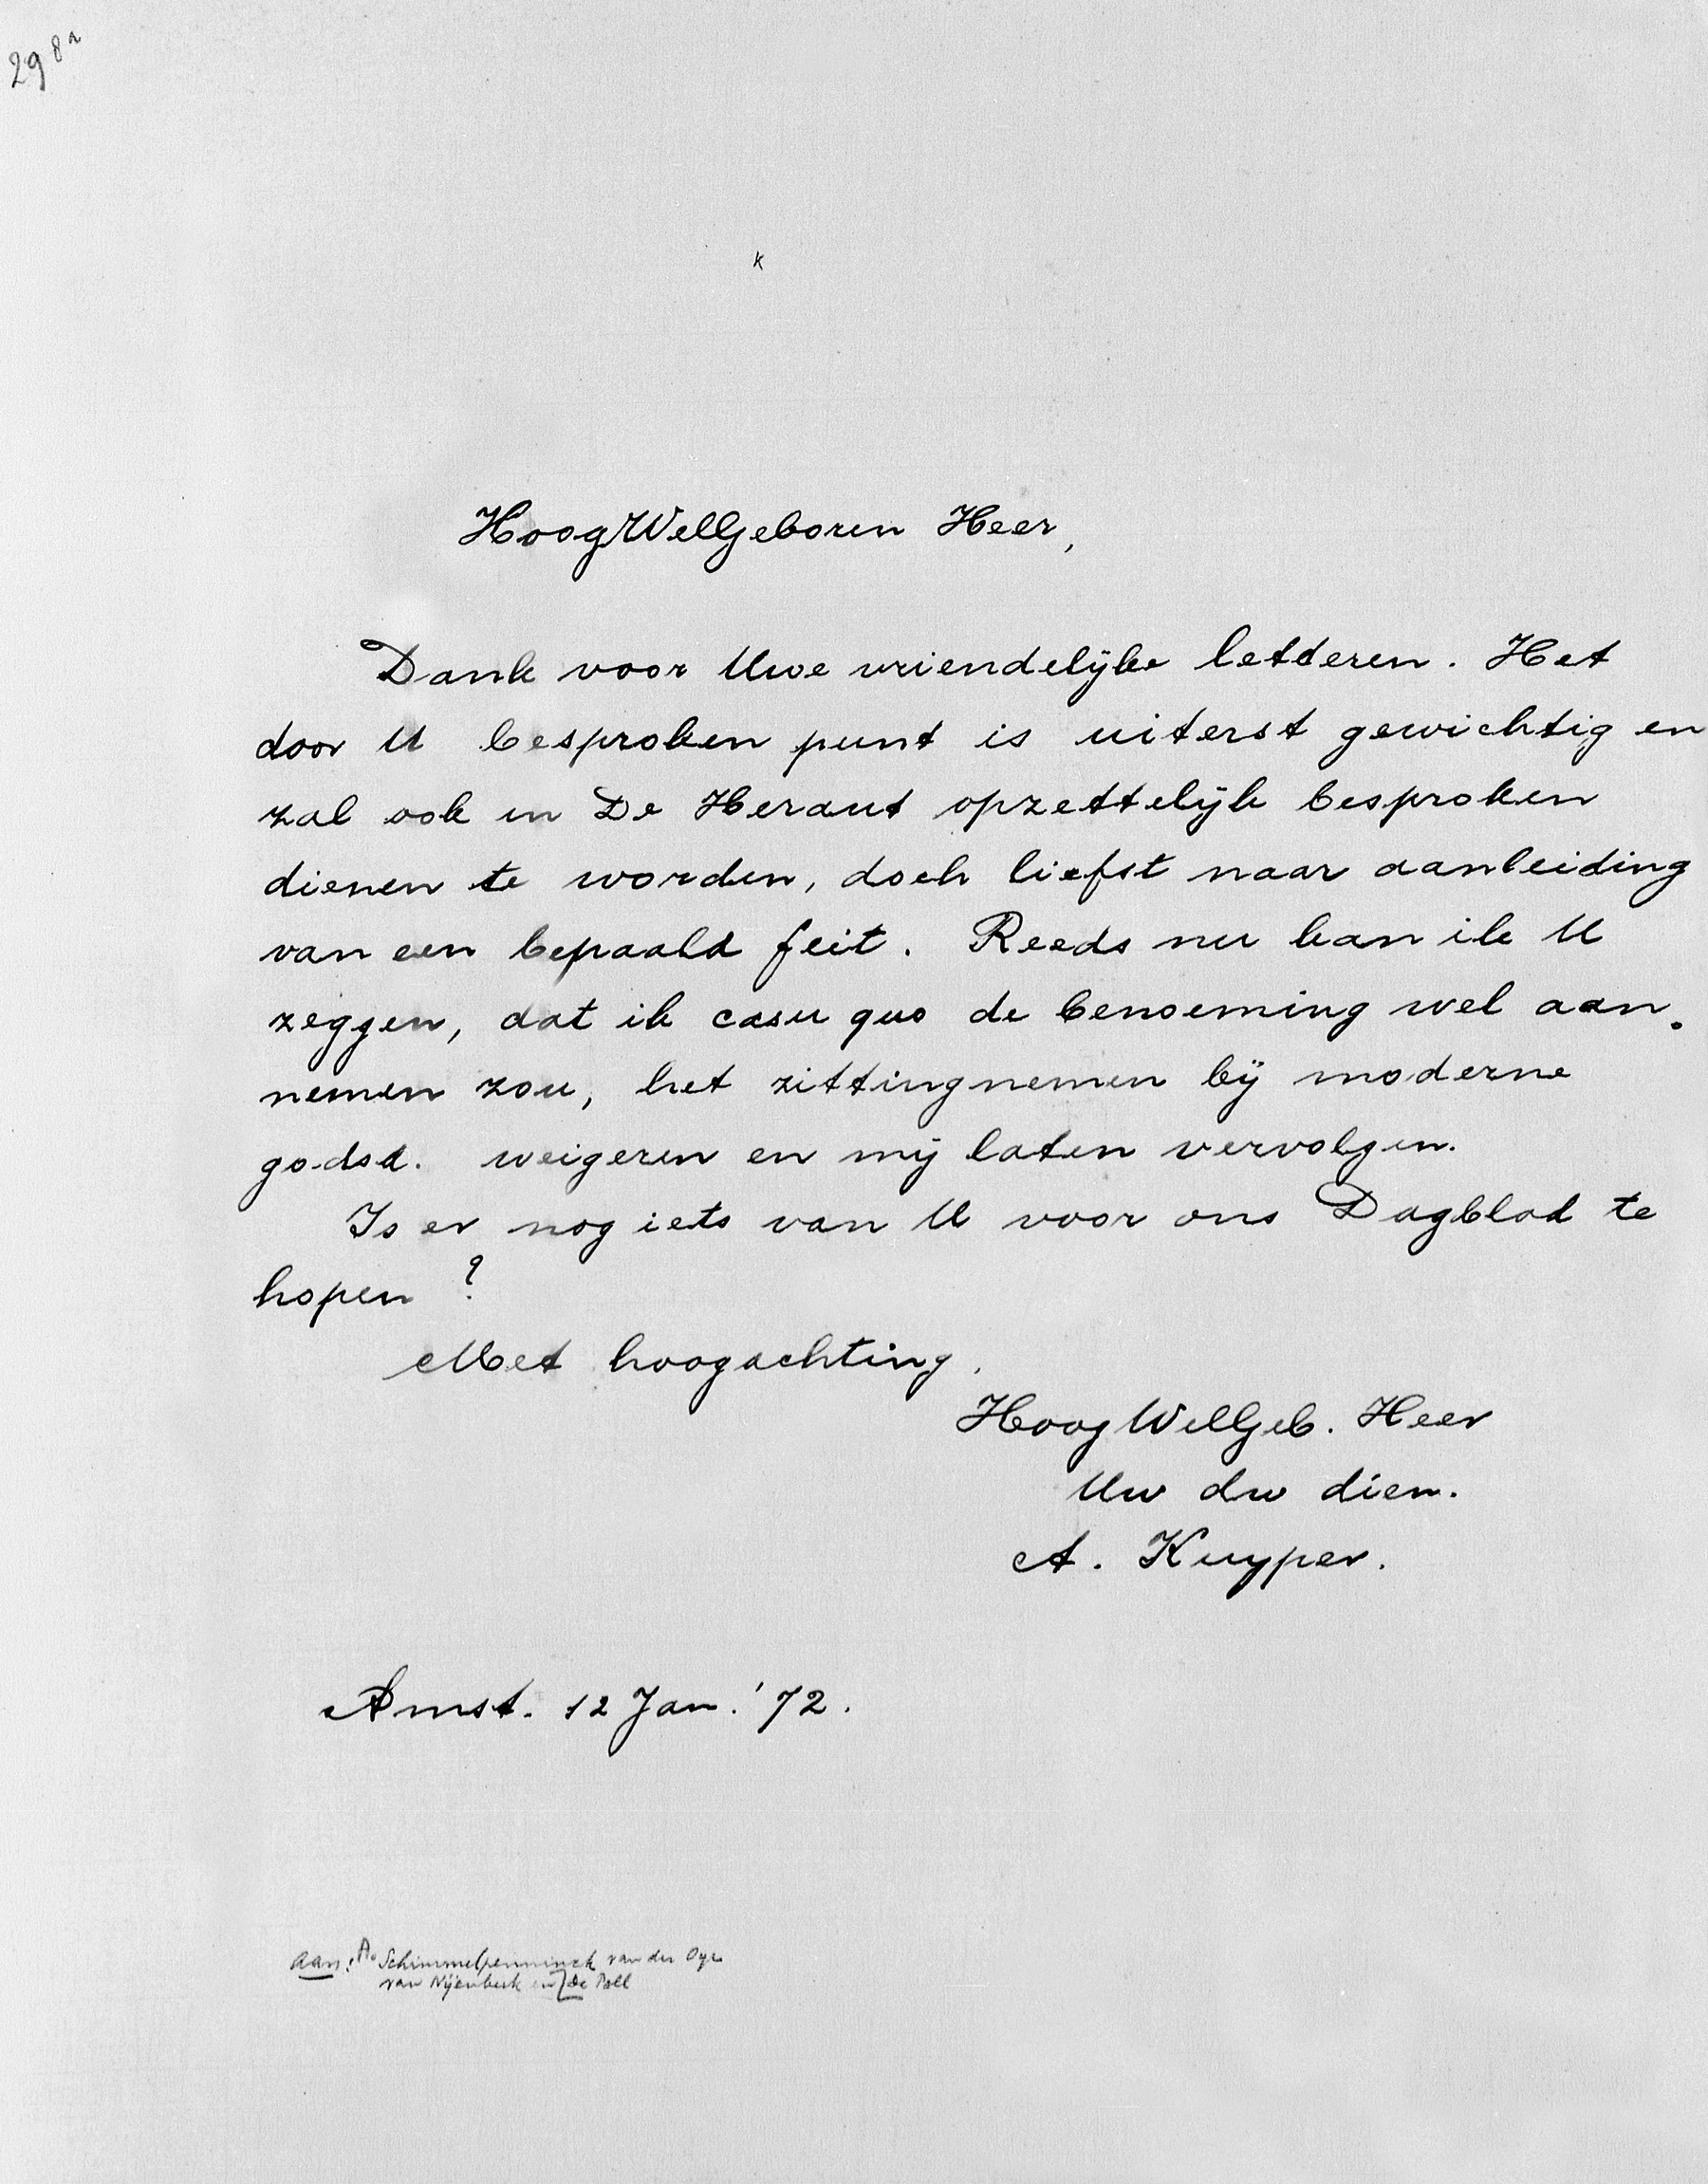 29 8a
k
HoogWelGeboren Heer,
Dank voor Uwe vriendelijke letteren. Het
door U besproken punt is uiterst gewichtig en
zal ook in De Heraut opzettelijk besproken
dienen te worden, doch liefst naar aanleiding
van een bepaald feit. Reeds nu kan ik U
zeggen, dat ik casu quo de benoeming wel aan.
nemen zou, het zittingnemen bij moderne
godsd. weigeren en mij laten vervolgen.
Is er nog iets van U voor ons Dagblad te
hopen ?
Met hoogachting,
HoogWelGeb. Heer
Uw dw dien.
A. Kuyper.
Amst. 12 Jan. '72.
aan: A. Schimmelpenninck van der Oye
van Nijenbeek en De Poll